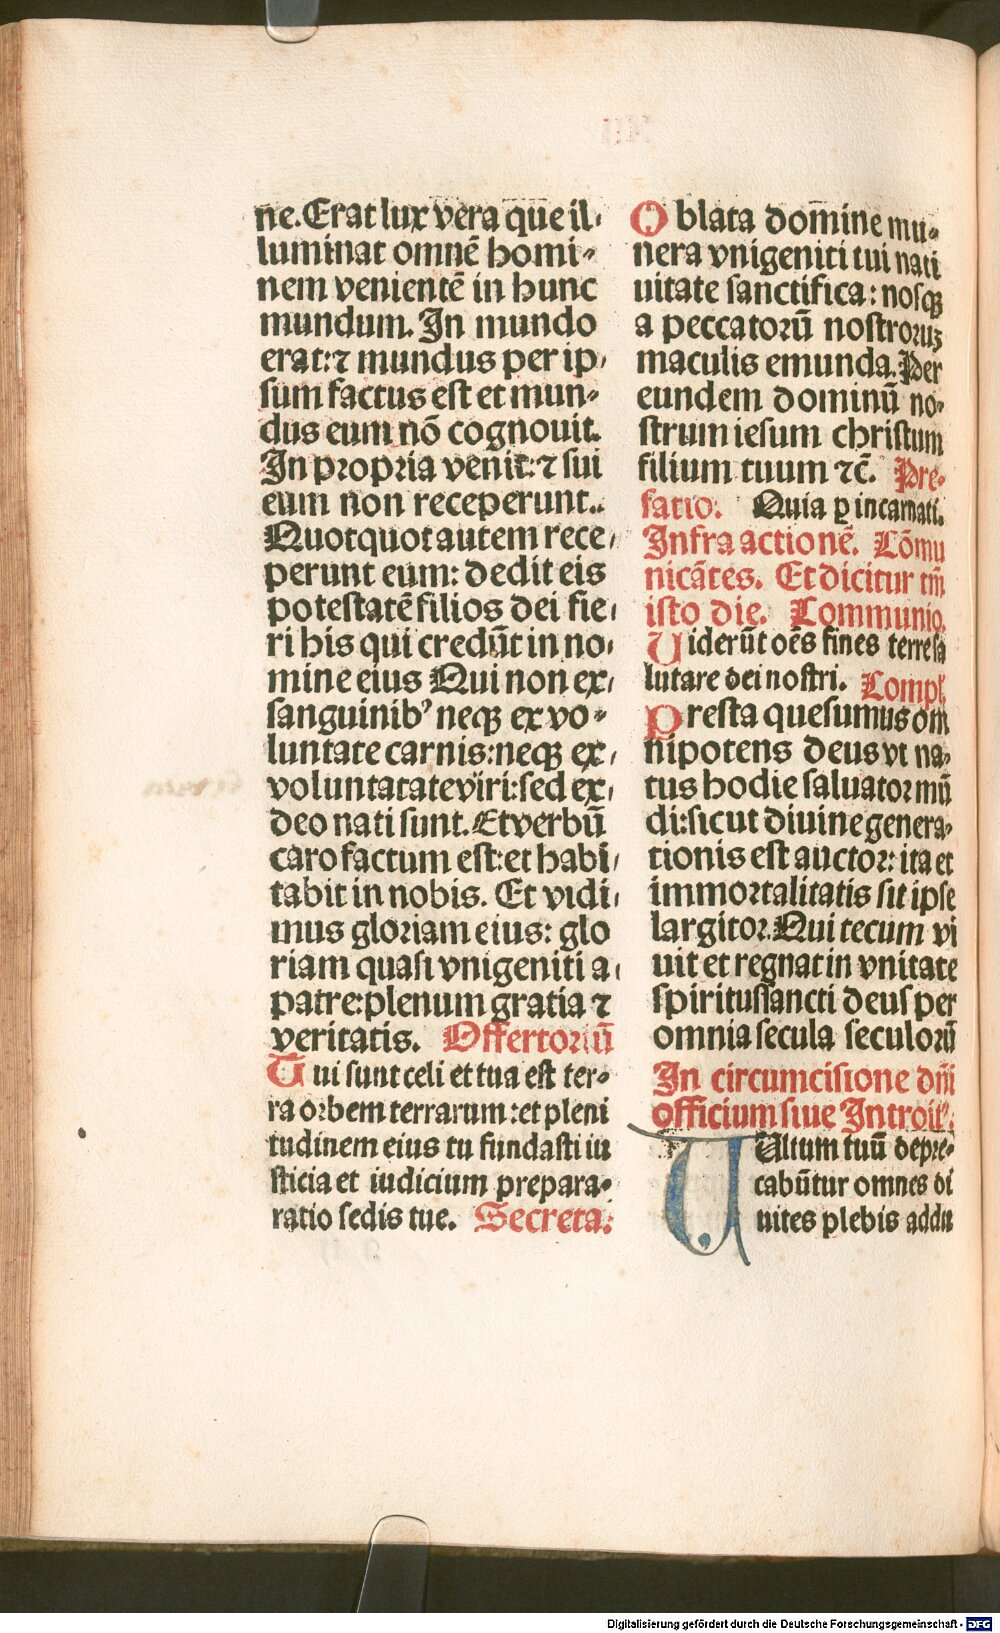 ne. Erat lux vera que il-
luminat omnē homi-
nem venientē in hunc
mundum. In mundo
erat: ⁊ mundus per ip-
sum factus est et mun-
dus eum nō cognouit.
In propria venit: ⁊ sui
eum non receperunt..
Quotquot autem rece-
perunt eum: dedit eis
potestatē filios dei fie-
ri his qui credūt in no-
mine eius Qui non ex-
sanguinib⁹ neqꝫ ex vo-
luntate carnis: neqꝫ ex-
voluntatate viri: sed ex-
deo nati sunt. Et verbū
caro factum est: et habi-
tabit in nobis. Et vidi-
mus gloriam eius: glo
riam quasi vnigeniti a-
patre: plenum gratia ⁊
veritatis. Offertoriū
Tui sunt celi et tua est ter-
ra orbem terrarum: et pleni
tudinem eius tu fundasti iu
sticia et iudicium prepara-
ratio sedis tue. Secreta:
Oblata domine mu-
nera vnigeniti tui nati
uitate sanctifica: nosqꝫ
a peccatorū nostroruꝫ
maculis emunda. Per
eundem dominū no-
strum iesum christum
filium tuum ⁊c̄. Pre-
fatio. Quia ꝑ incarnati.
Infra actionē. Cōmu
nicātes. Et dicitur tm̄
isto die. Communio.
Uiderūt oēs fines terre sa
lutare dei nostri. Compl.
Presta quesumus om
nipotens deus vt na-
tus hodie saluator mū
di: sicut diuine genera-
tionis est auctor: ita et
immortalitatis sit ipse
largitor. Qui tecum vi
uit et regnat in vnitate
spiritussancti deus per
omnia secula seculorū
In circumcisione dn̄i
officium siue Introit⁹:
UUltum tuū depre-
cabūtur omnes di
uites plebis addu
Digitalisierung gefördert durch die Deutsche Forschungsgemeinschaft - DFG